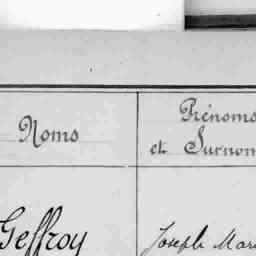 Noms
Prénoms
et Surnom
Geffroy
Joseph Mar